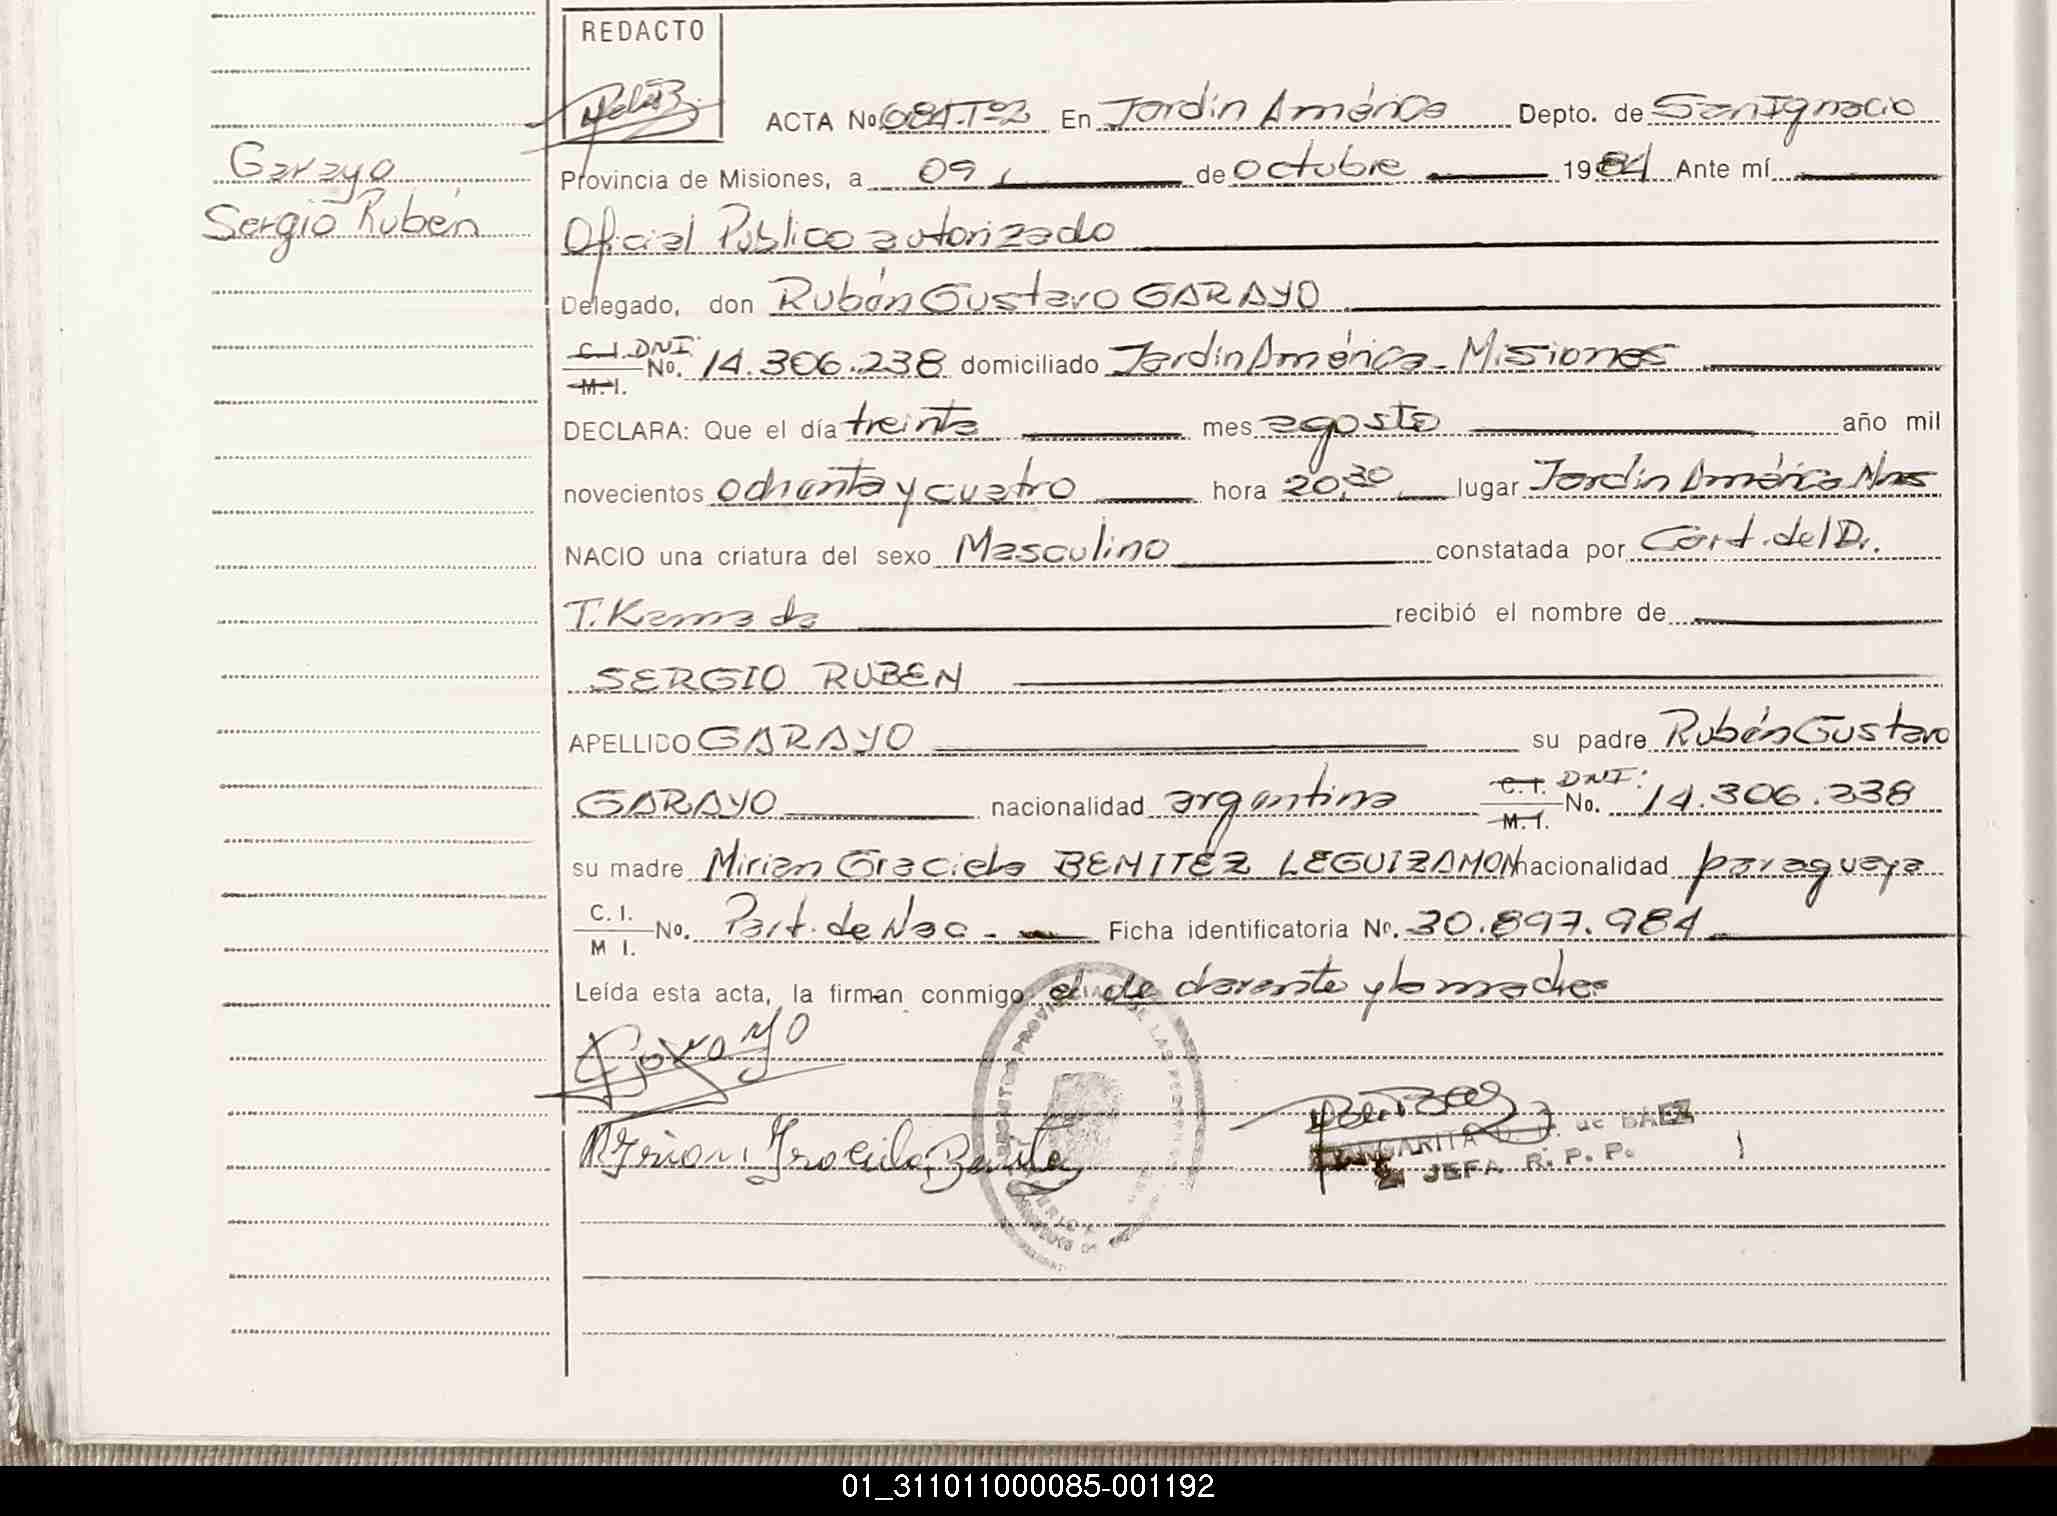 REDACTO
ACTA No 084-Tº2 En Jardín América Depto. de San Ignacio
Garayo
Provincia de Misiones, a 09 de Octubre 1984 Ante mí
Sergio Rubén
Oficial Público autorizado
Delegado, don Rubén Gustavo GARAYO
C.I. DNI:
No. 14.306.238 domiciliado Jardín América - Misiones
M.I.
DECLARA: Que el día treinta mes agosto año mil
novecientos ochenta y cuatro hora 20,30 lugar Jardín América Mnes
NACIO una criatura del sexo Masculino constatada por Cert. del Dr.
T. Kamada recibió el nombre de
SERGIO RUBEN
APELLIDO GARAYO su padre Rubén Gustavo
GARAYO nacionalidad argentina C.I. DNI: No. 14.306.238
M.I.
su madre Mirian Graciela BENITEZ LEGUIZAMON nacionalidad paraguaya
C. I.
No. Part. de Nac - Ficha identificatoria No. 30.897.984
M I.
Leída esta acta, la firman conmigo el declarante y la madre
Garayo
Mirian Graciela Benitez
MARGARITA de BAEZ
JEFA R. P. P.
01_311011000085-001192